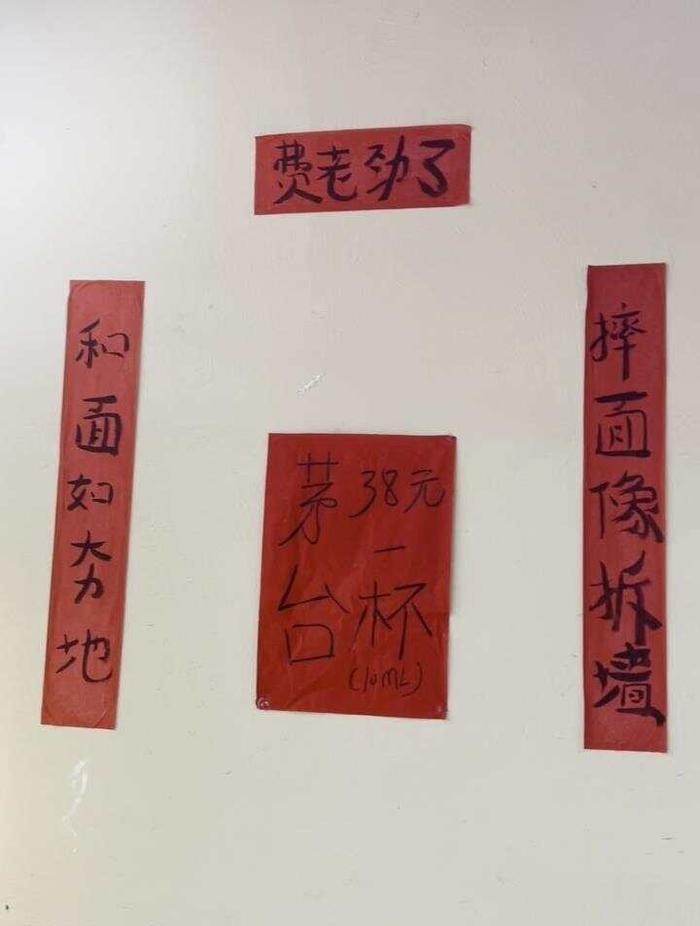 费老劲了
摔面像拆墙
和面如夯地
茅台
38元
一杯
(10ML)